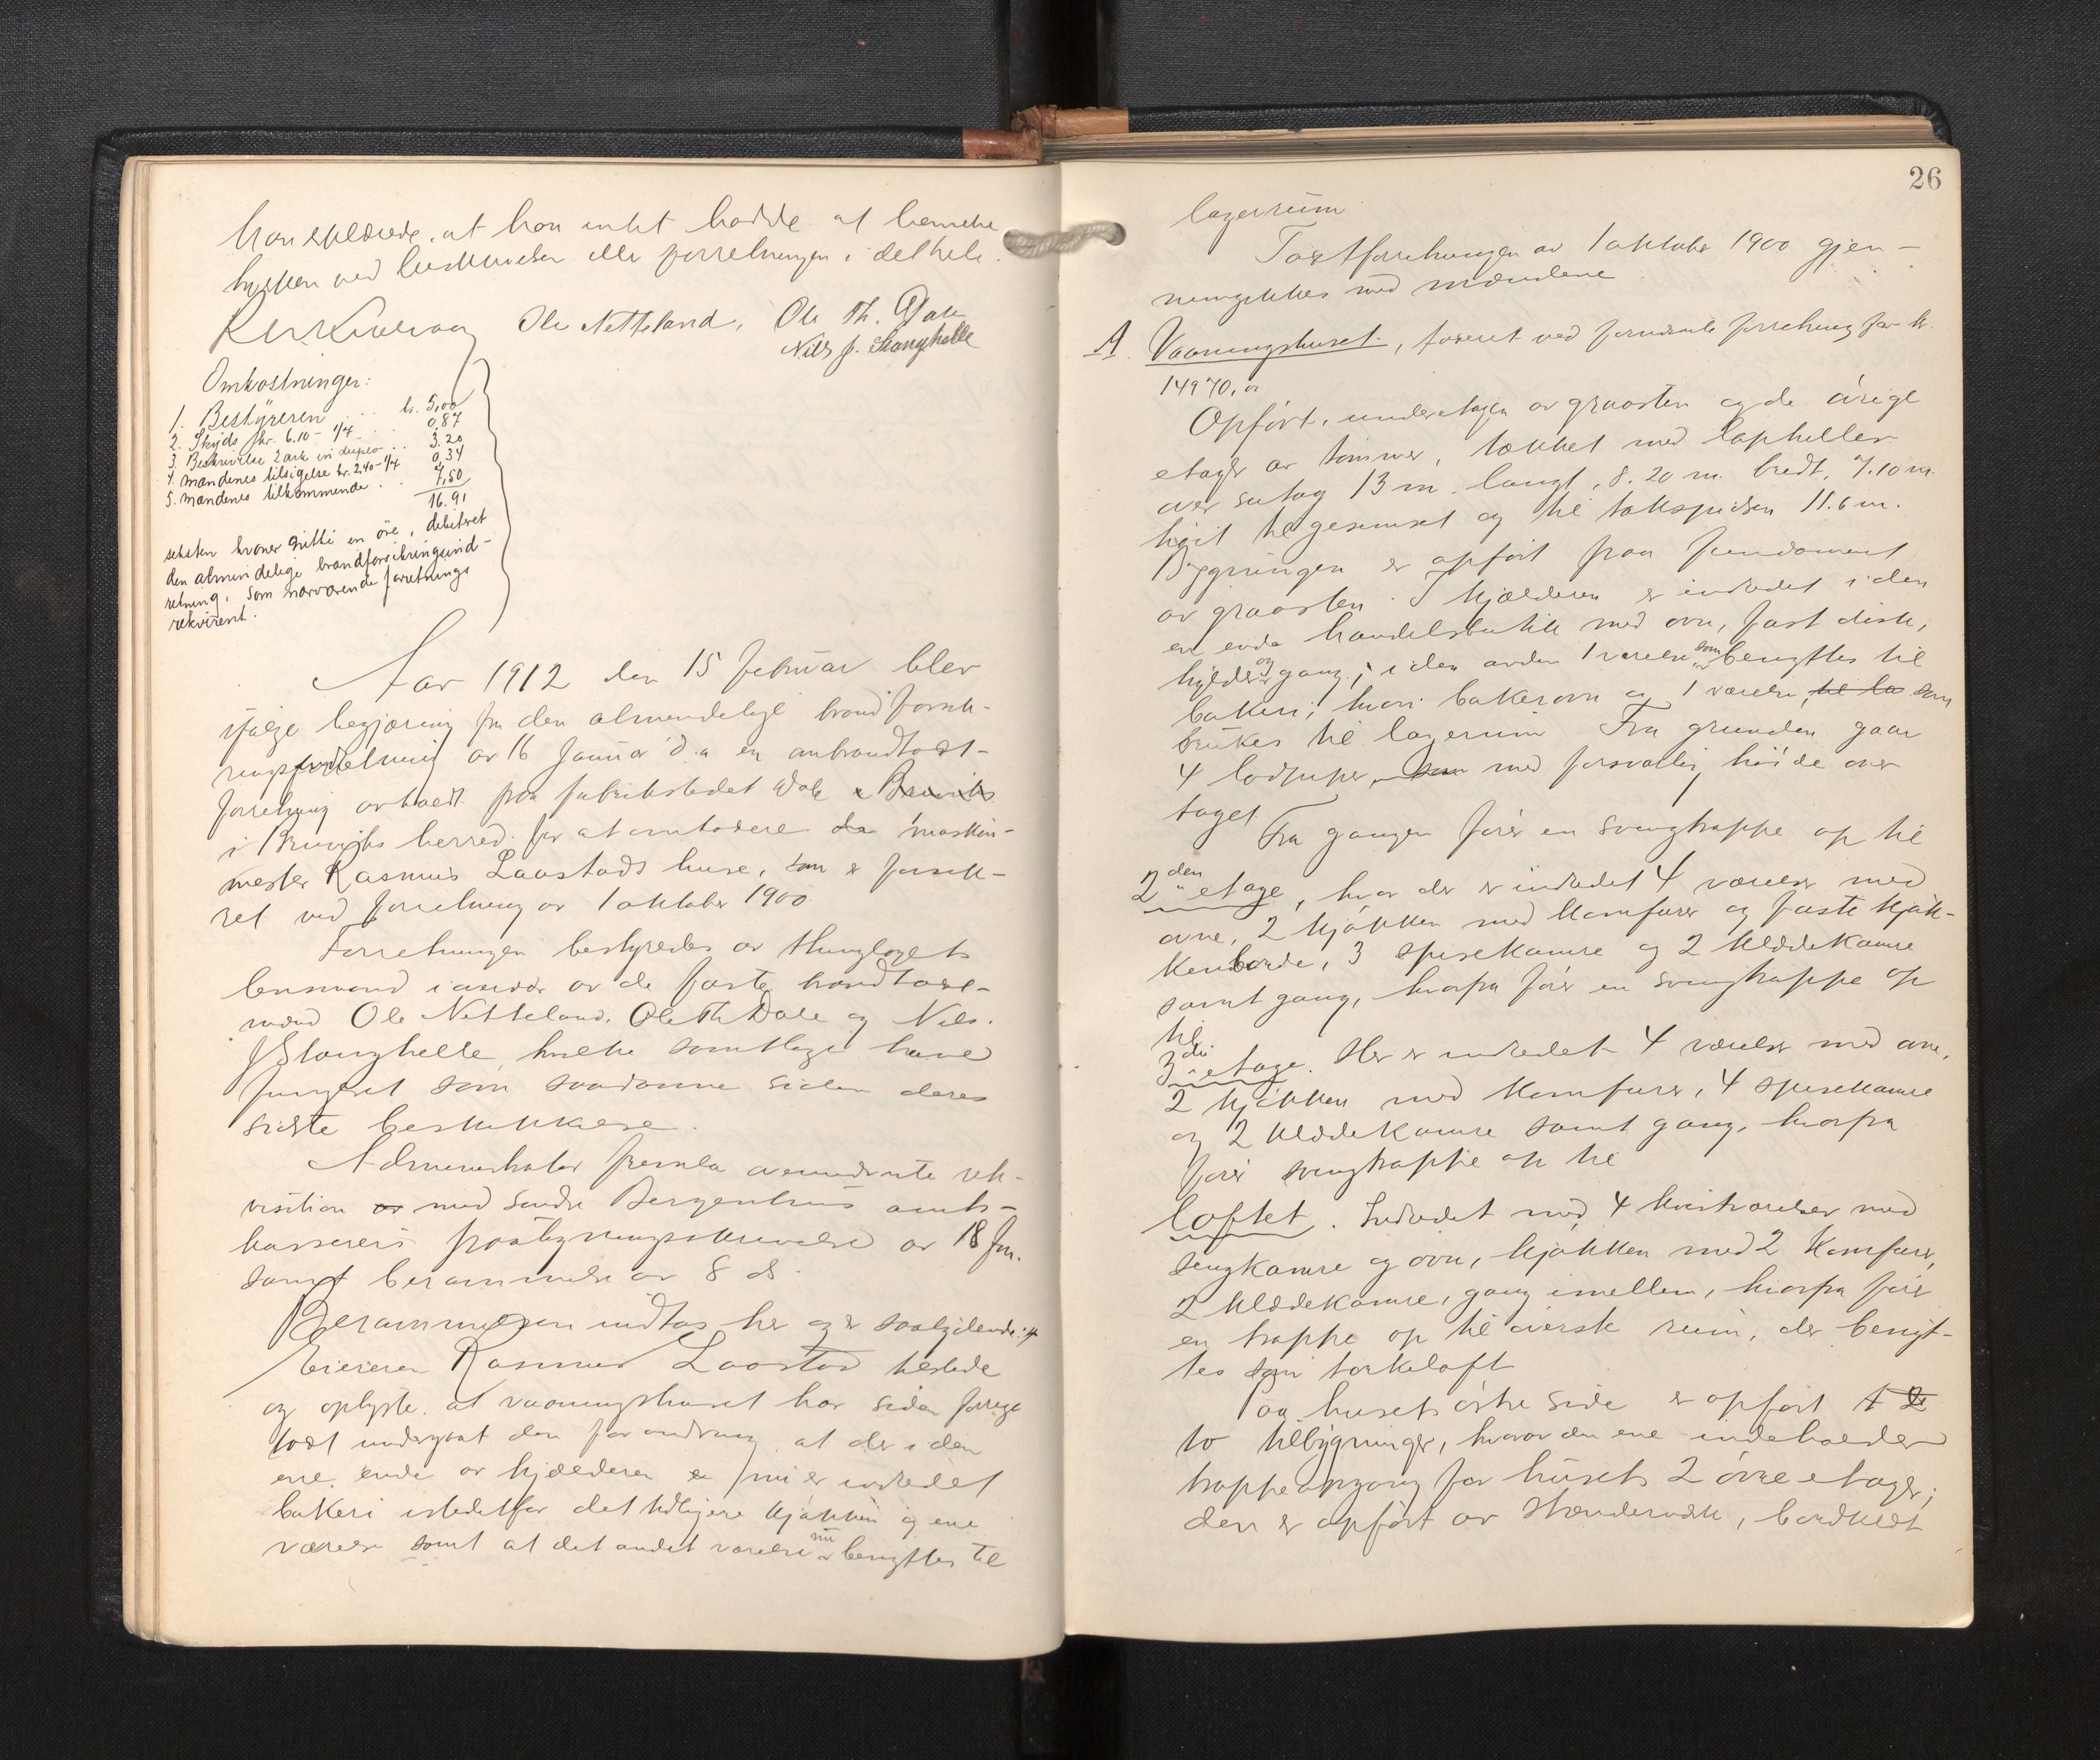 han erklærede, at han intet hadde at bemerke
hverken ved beskrivelsen eller forretningen i det hele.
Ole Netteland, Ole Th. Dale
Nils J. Stanghelle
Omkostninger:
1. Bestyreren . . . kr. 5,00
2. Skyds kr. 6.10 - 1/4 . . 0,87
3. Beskrivelse 2 ark in duplo . . . 3.20
4. mændenes tilsigelse kr. 2,40 - 1/7 0,34
5. mændenes tilkommende . . 7,50
16.91
seksten kroner nitti en øre, debiteret
den almindelige brandforsikringsind-
retning, som nærværende forretnings
rekvirent.
Aar 1912 den 15 februar blev
ifølge begjæring fra den almindelige brandforsik-
ringsindretning av 16 januar d.a. en ombrandtakst-
forretning avholdt paa fabrikstedet Dale i Bruviks
i Bruviks herred for at omtaksere da maskin-
mester Rasmus Laastads huse, som er forsik-
ret ved forretning av 1 oktober 1900.
Forretningen bestyredes av thinglagets
lensmand i overvær av de faste brandtakst-
mænd Ole Netteland, Ole Th Dale og Nils
J Stanghelle, hvilke samtlige have
fungeret som saadanne siden deres
sidste beskikkelse.
Administrator fremla ovennævnte rek-
visition av med søndre Bergenhus amts-
kasserers paategningsskrivelse av 18 jan.
samt berammelse av 8 ds.
Berammelsen indtas her og er saalydende:
Eieren Rasmus Laastad tilstede
og oplyste, at vaaningshuset har siden forrige
takst undergaat den forandring, at der i den
ene ende av kjælderen er nu er indredet
bakeri istedetfor det tidligere kjøkken og ene
værelse samt at det andet værelse nu benyttes til
26
lagerrum
Takstforretningen av 1 oktober 1900 gjen-
nemgikkes med mændene
A. Vaaningshuset, takseret ved forrævnte forretning for kr.
14970,00
Opført, underetagen av graasten og de øvrige
etager av tømmer, tækket med lapheller
over sutag 13 m. langt, 8.20 m. bredt, 7.10 m.
høit til gesimset og til takspidsen 11.6 m.
Bygningen er opført paa fundament
av graasten. I kjælderen er indredet i den
ene ende handelsbutik med ovn, fast disk,
hylder og gang; i den anden 1 værelse som benyttes til
bakeri, hvori bakerovn og 1 værelse, til la som
brukes til lagerrum Fra grunden gaar
4 lodpiper, som med forsvarlig høide over
taget
Fra gangen fører en svingtrappe op til
2den etage, hvor der er indredet 4 værelser med
ovne, 2 kjøkken med komfurer og faste kjøk-
kenborde, 3 spisekamre og 2 klædekamre
samt gang, hvorfra fører en svingtrappe op
til
3die etage. Her er indredet 4 værelser med ovne,
2 kjøkken med komfurer, 4 spisekamre
og 2 klædekamre samt gang, hvorfra
fører svingtrappe op til
loftet. Indredet med 4 kvistværelser med
sengkamre og ovn, kjøkken med 2 komfurer,
2 klædekamre, gang imellem, hvorfra fører
en trappe op til øverste rum, der benyt-
tes som tørkeloft
Paa husets østre side er opført
to tilbygninger, hvorav den ene indeholder
trappeopgang for husets 2 øvre etager;
den er opført av stænderverk, bordklædt